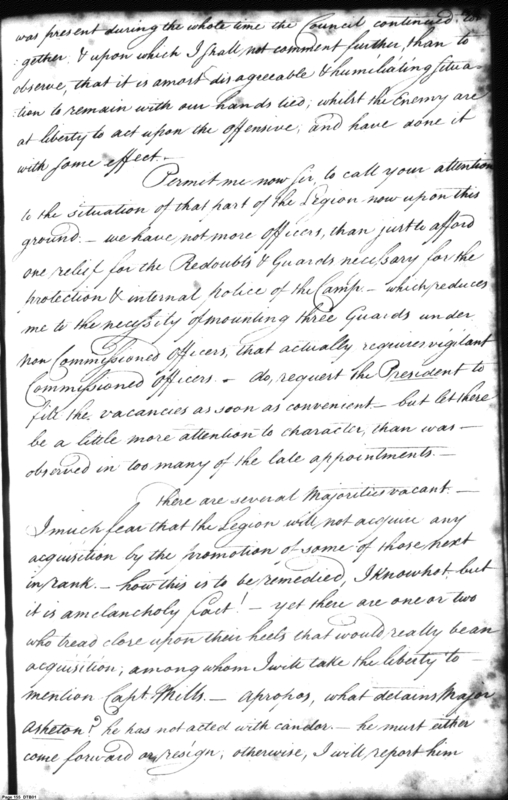 was present during the whole time the Council continued to-
:gether. & upon which I shall not comment further, than to
observe, that it is a most disagreeable & humiliating situa-
tion to remain with our hands tied; whilst the Enemy are
at liberty to act upon the offensive, and have done it
with some effect.—
Permit me now Sir, to call your attention
to the situation of that part of the Legion now upon this
ground.— we have not more officers, than just to afford
one relief for the Redoubts & Guards necessary for the
protection & internal police of the Camp— which reduces
me to the necessity of mounting three Guards under
non Commissioned officers, that actually requires vigilant
Commissioned officers.— do, request the President to
fill the vacancies as soon as convenient— but let there
be a little more attention to character, than was—
observed in too many of the late appointments.—
There are several Majorities vacant.—
I much fear that the Legion will not acquire any
acquisition by the promotion of some of those next
in rank.— how this is to be remedied, I know not— but
it is a melancholy fact!— yet there are one or two
who tread close upon their heels that would really be an
acquisition, among whom I will take the liberty to—
mention Capt. Mills.— apropos, what detains Major
Asheton? he has not acted with candor— he must either
come forward or resign, otherwise, I will report him
Page 155 DTB01